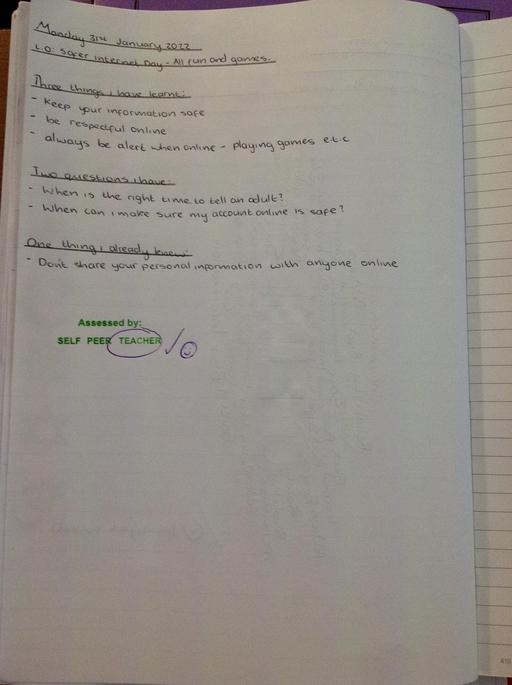 Monday 31st January 2022
L.O: Safer Internet Day - All fun and games.
Three things i have learnt:
- Keep your information safe
- be respectful online
- always be alert when online - playing games e.t.c
Two questions i have:
- When is the right time to tell an adult?
- When can i make sure my account online is safe?
One thing i already knew:
- Don't share your personal information with anyone online
Assessed by:
SELF PEER TEACHER